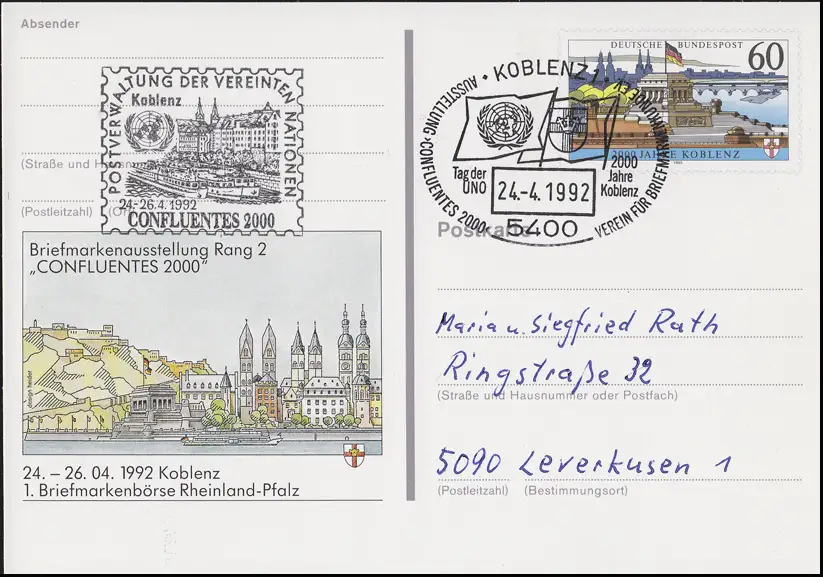 Absender
POSTVERWALTUNG DER VEREINTEN NATIONEN
Koblenz
24.-26.4.1992
CONFLUENTES 2000
(Straße und Hausnum
(Postleitzahl) (O
Briefmarkenausstellung Rang 2
„CONFLUENTES 2000“
24. – 26. 04. 1992 Koblenz
1. Briefmarkenbörse Rheinland-Pfalz
DEUTSCHE BUNDESPOST
60
2000 JAHRE KOBLENZ
KOBLENZ 1
AUSSTELLUNG »CONFLUENTES 2000«
VEREIN FÜR BRIEFMARKENKUNDE E.V.
Tag der
UNO
2000
Jahre
Koblenz
24.-4.1992
5400
Postkarte
Maria u. Siegfried Rath
Ringstraße 32
(Straße und Hausnummer oder Postfach)
5090 Leverkusen 1
(Postleitzahl) (Bestimmungsort)